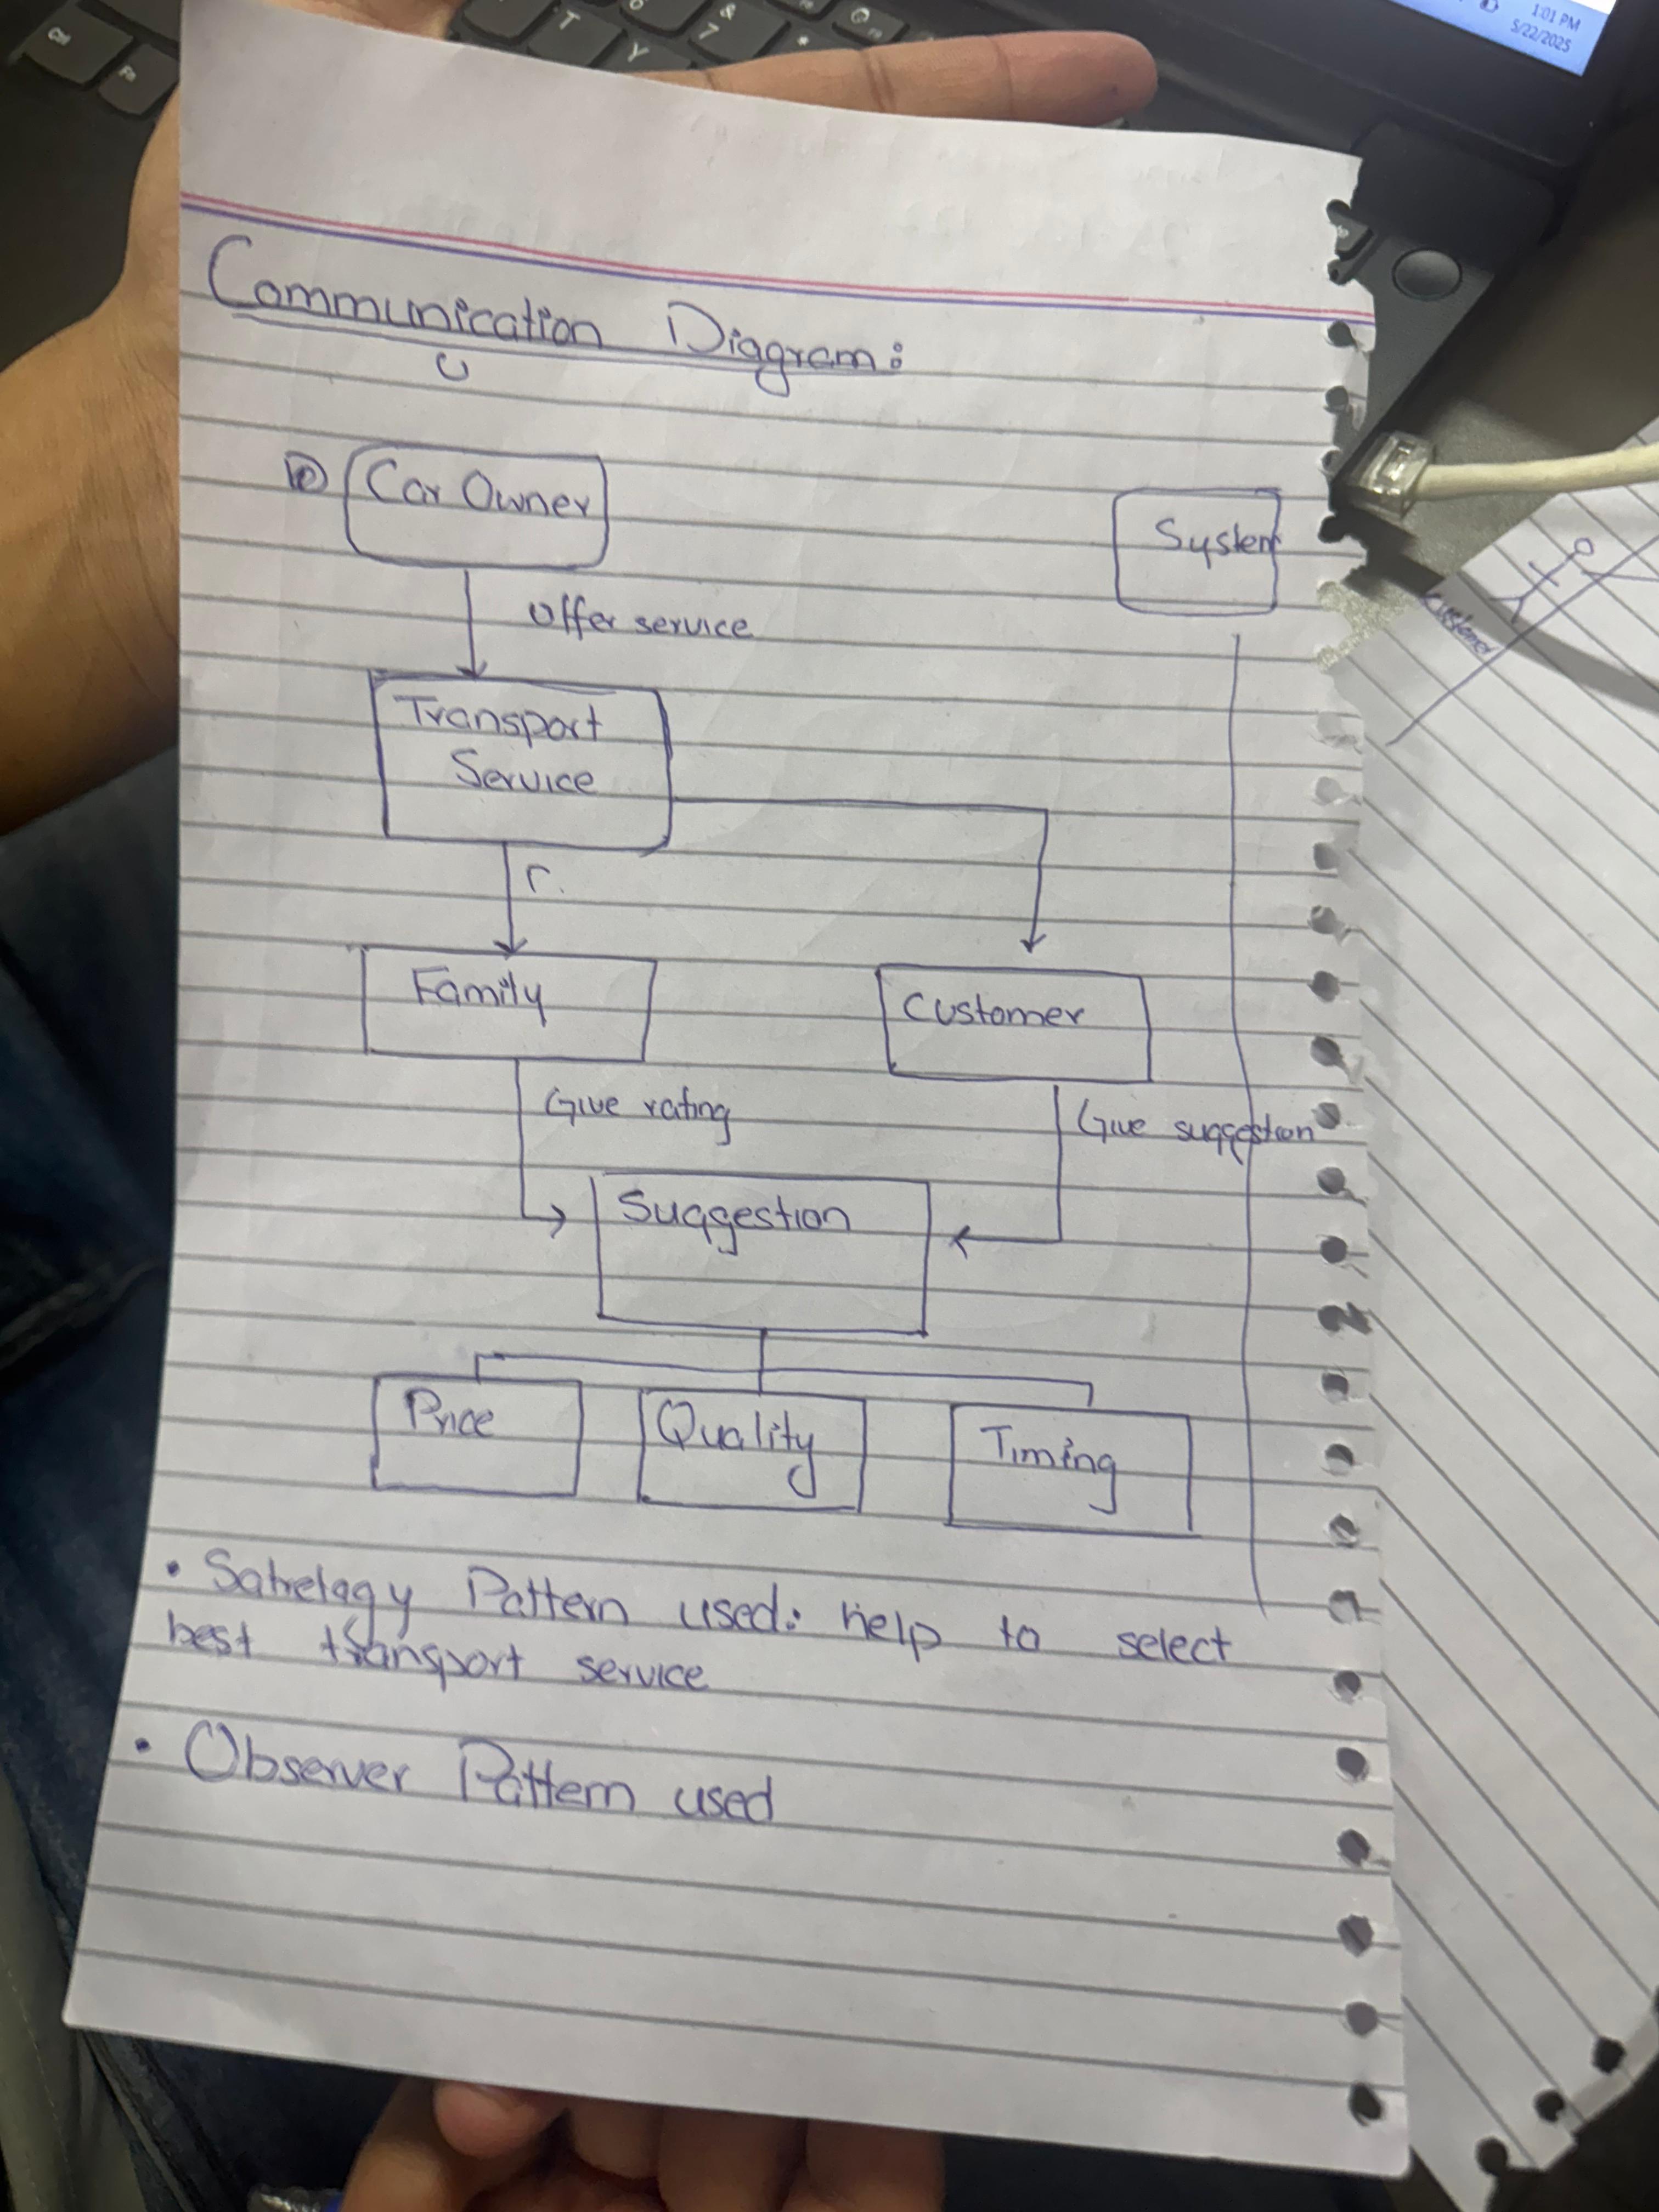 1:01 PM
5/22/2025
Communication Diagram:
Car Owner
System
Offer service
Customer
Transport
Service
r.
Family
Customer
Give rating
Give suggestion
Suggestion
Price
Quality
Timing
• Satrelagy Pattern used: help to select
best transport service
• Observer Pattern used